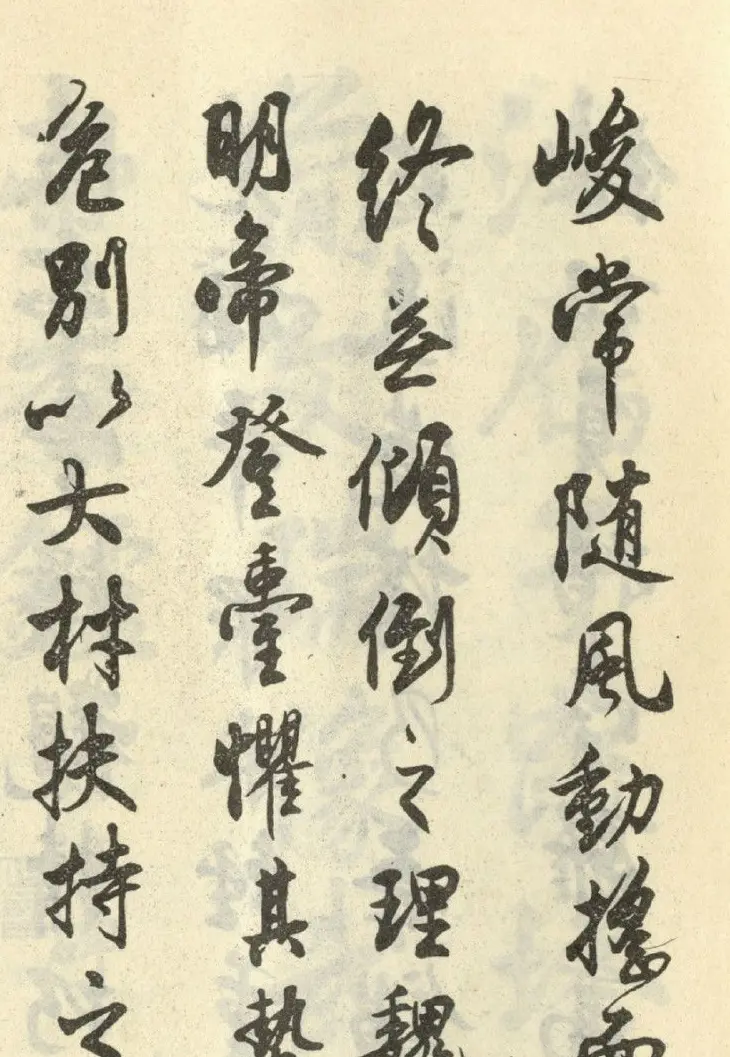 峻常随風動摇而
終無傾倒之理魏
明帝登臺懼其勢
危別以大材扶持之